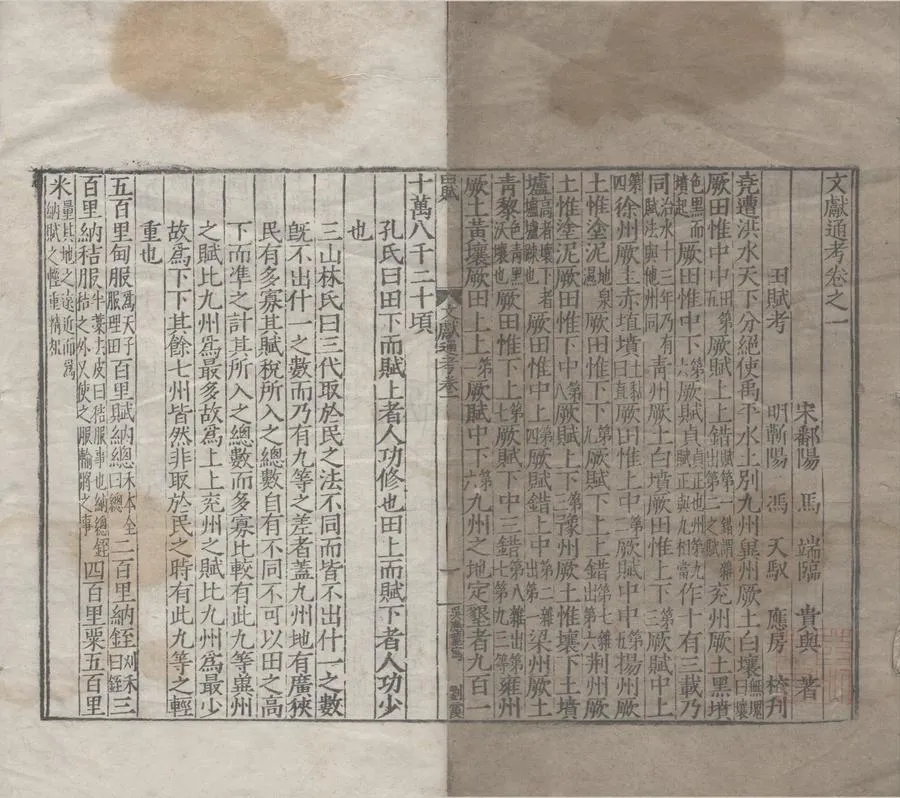 文獻通考卷之一
宋鄱陽 馬 端臨 貴與 著
田賦考 明蘄陽 馮 天馭 應房 校刊
堯遭洪水天下分絕使禹平水土別九州冀厥土白壤無塊曰壤
厥田惟中中田第五厥賦上上錯賦第一錯謂雜出第二之賦兖州厥土黑墳
色黑而墳起厥田惟中下第六厥賦貞貞正也州第九賦正與九相當作十有三載乃
同治水十三年乃有賦法與他州同青州厥土白墳厥田惟上下第三厥賦中上
第四徐州厥土赤埴墳土黏曰埴厥田惟上中第二厥賦中中第五揚州厥
土惟塗泥地泉濕厥田惟下下第九厥賦下上上錯第七雜出第六荆州厥
土惟塗泥厥田惟下中第八厥賦上下第三豫州厥土惟壤下土墳
壚高者壤下者壚壚疎也厥田惟中上第四厥賦錯上中第二雜出第一梁州厥土
青黎色青黑沃壤也厥田惟下上第七厥賦下中三錯第八雜出第七第九三等雍州
厥土黃壤厥田上上第一厥賦中下第六九州之地定墾者九百一
田賦 文獻通考卷一 一 劉霞
十萬八千二十頃
孔氏曰田下而賦上者人功修也田上而賦下者人功少
也
三山林氏曰三代取於民之法不同而皆不出什一之數
旣不出什一之數而乃有九等之差者蓋九州地有廣狹
民有多寡其賦稅所入之總數自有不同不可以田之高
下而準之計其所入之總數而多寡比較有此九等冀州
之賦比九州爲最多故爲上上兖州之賦比九州爲最少
故爲下下其餘七州皆然非取於民之時有此九等之輕
重也
五百里甸服爲天子服理田百里賦納總禾本全曰總二百里納銍刈禾曰銍三
百里納秸服半藁去皮曰秸服事也納總銍秸之外又使之服輸將之事四百里粟五百里
米量其地之遠近而爲納賦之輕重精粗